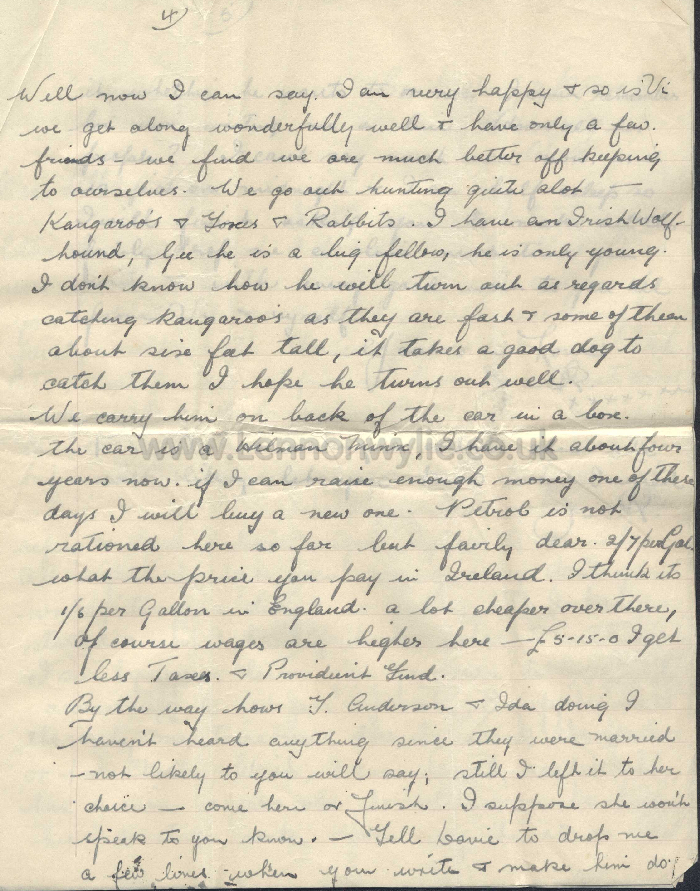 4
Well now I can say. I am very happy & so is Vi
we get along wonderfully well & have only a few.
friends - we find we are much better off keeping
to ourselves. We go out hunting quite alot —
Kangaroo's & Foxes & Rabbits. I have an Irish Wolf-
hound, Gee he is a big fellow, he is only young.
I don't know how he will turn out as regards
catching Kangaroo's as they are fast & some of them
about six feet tall, it takes a good dog to
catch them I hope he turns out well.
We carry him on back of the car in a box.
the car is a Hilman Minx, I have it about four
years now. if I can raise enough money one of these
days I will buy a new one. Petrol is not
rationed here so far but fairly dear. 2/7 per Gal.
what the price you pay in Ireland. I think its
1/6 per Gallon in England. a lot cheaper over there,
of course wages are higher here — £5-15-0 I get
less Taxes. & Provident Fund.
By the way hows Y. Anderson & Ida doing I
haven't heard anything since they were married
- not likely to you will say; still I left it to her
choice — come here or finish. I suppose she won't
speak to you know. — Tell Davie to drop me
a few lines when you write & make him do
www.lennonwylie.co.uk